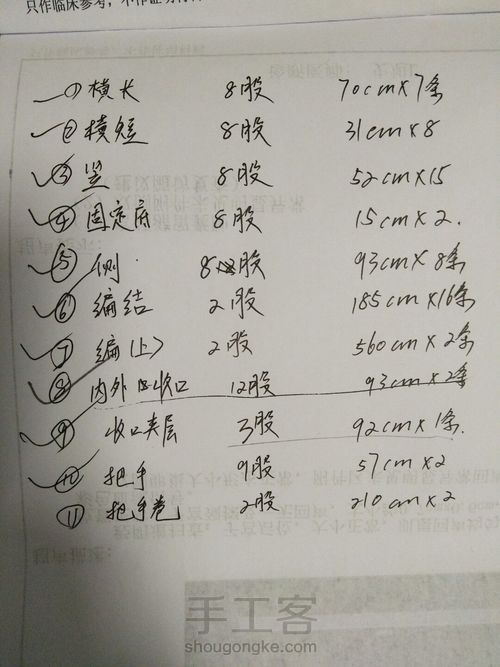 只作临床参考,不作证明材料
① 横长 8股 70cm×7条
② 横短 8股 31cm×8
③ 竖 8股 52cm×15
④ 固定底 8股 15cm×2.
⑤ 侧 8股 93cm×8条
⑥ 编结 2股 185cm×16条
⑦ 编(上) 2股 560cm×2条
⑧ 内外收口 12股 93cm×2条
⑨ 收口夹层 3股 92cm×1条.
⑩ 把手 9股 57cm×2
⑪ 把手卷 2股 210cm×2
手工客
shougongke.com